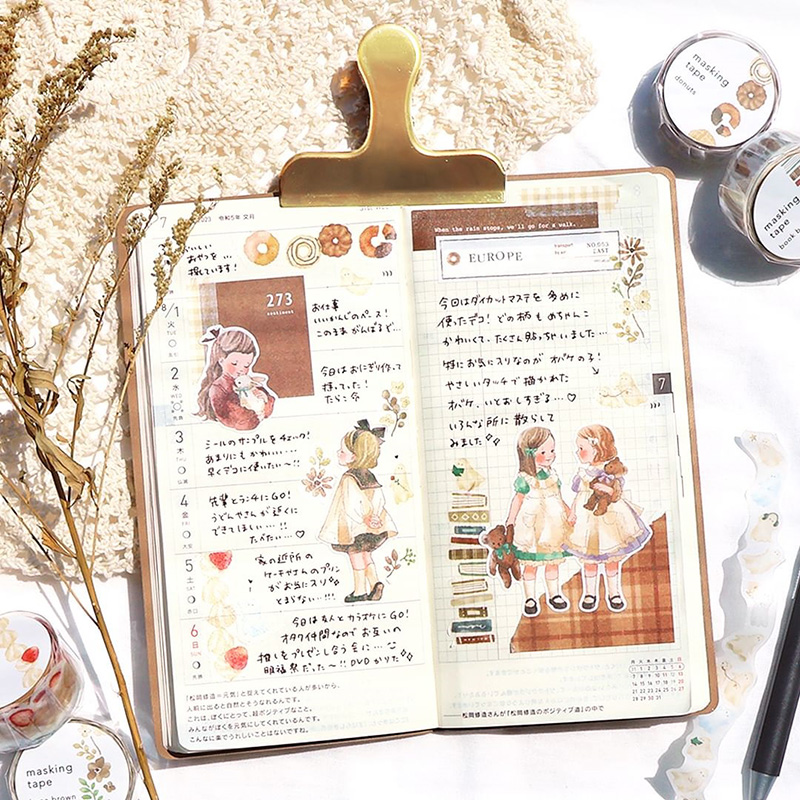 7
2023 令和5年 文月
おいしい
おやつを…
描ています!
8/1
火
TUE
273
continent
お仕事
いいかんじのペース!
このままがんばるぞ…
2
水
WED
今日はおにぎり作って
持ってった!
たらこ味
3
木
THU
シールのサンプルをチェック!
あまりにもかわいい…
早くデコに使いたい〜!!
4
金
FRI
先輩とランチにGO!
うどんやさんが近くに
できてほしい…!!
たべたい…♡
5
土
SAT
家の近所の
ケーキやさんのプリン
がお気に入り
とまらない…!!!
6
日
SUN
今日は友人とカラオケにGO!
オタク仲間なのでお互いの
推しをプレゼンし合う会に…
眼福祭だった〜!! DVDかりた
「松岡修造=元気」と捉えてくれている人が多いから、
人前に出ると自然とそうなれるんです。
これは、ぼくにとって、超ポジティブなこと。
みんながぼくを元気にしてくれているんです。
こんなに楽でうれしいことはないですね。
When the rain stops, we'll go for a walk.
EUROPE
transport
by air
NO.053
EAST
今回はダイカットマステを多めに
使ったデコ! どの柄もめちゃんこ
かわいくて、たくさん貼っちゃいました…
特にお気に入りなのがオバケの子!
やさしいタッチで描かれた
オバケ、いとおしすぎる…♡
いろんな所に散らして
みました
7
月 火 水 木 金 土 日
——松岡修造さんが『松岡修造のポジティブ道』の中で
masking
tape
donuts
masking
tape
masking
tape
brown